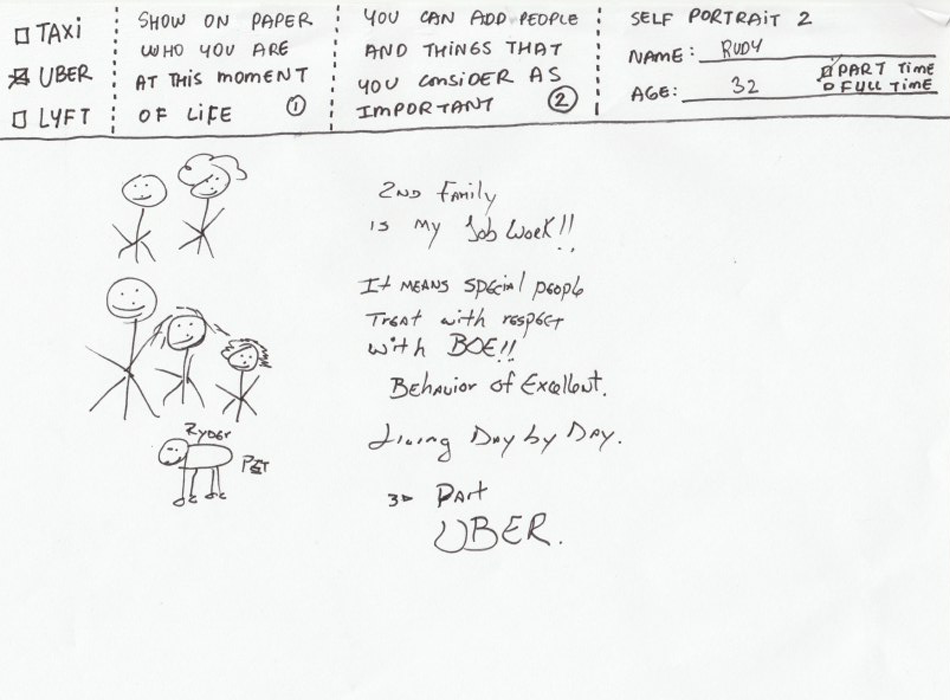 TAXI
UBER
LYFT
SHOW ON PAPER
WHO YOU ARE
AT THIS MOMENT
OF LIFE 1
YOU CAN ADD PEOPLE
AND THINGS THAT
YOU CONSIDER AS
IMPORTANT 2
SELF PORTRAIT 2
NAME: RUDY
AGE: 32
PART TIME
FULL TIME
2ND Family
is My Job Work!!
It MEANS special people
Treat with respect
with BOE!!
Behavior of Excellent.
Living Day by Day.
3D Part
UBER.
Ryder
PET